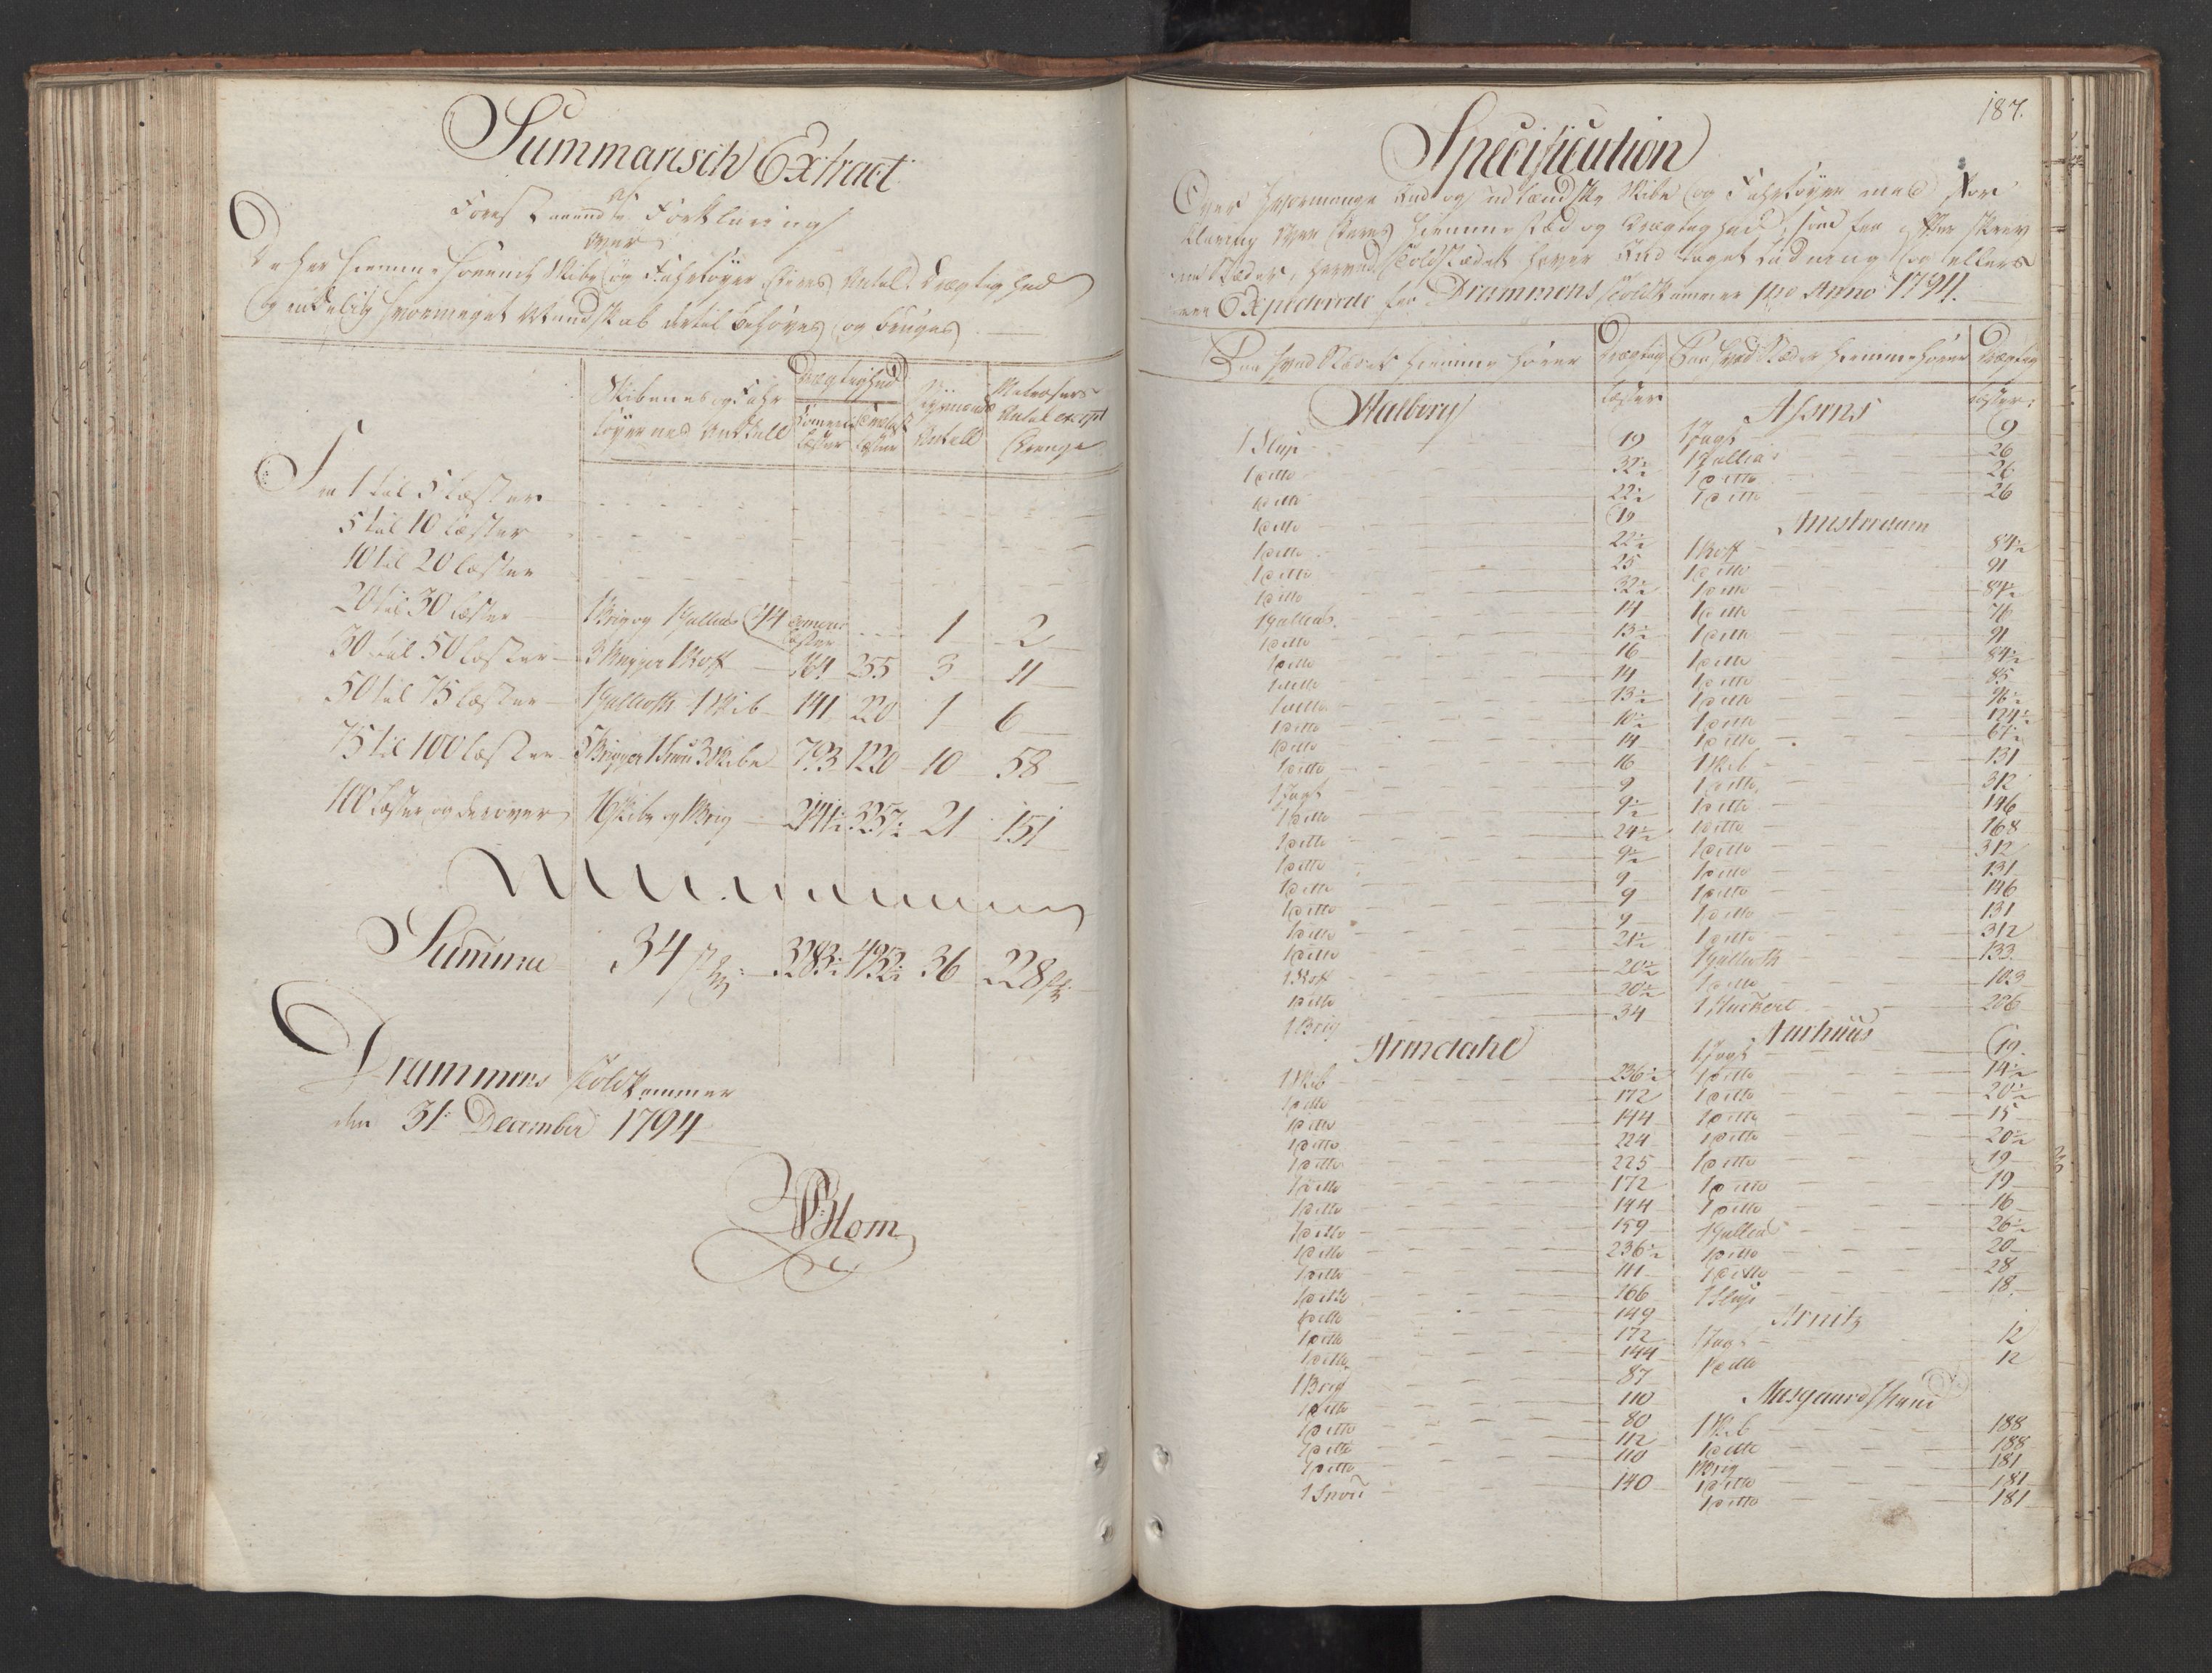 Summarisch Extract
af
Forestaaende Forklaring
over
De her hiemmehørende Skibe og Fahrtøyer, deres Antal, Drægtighed
og endelig hvormeget Mandskab dertil behøves og bruges
Skibenes og Fahrtøyernes Anttall
Drægtighed
Comerce Læster
Læster
Styrmænds Antall
Matrosers Antal except Drenge
Fra 1 til 5 Læster
5 til 10 Læster
10 til 20 Læster
20 til 30 Læster 1 Brig og 1 Gallias 44 Comerce Læster 1 2
30 til 50 Læster 3 Brigger 1 Koff 164 255 3 11
50 til 75 Læster 1 Gallioth 1 Skib 141 220 1 6
75 til 100 Læster 5 Brigger 1 Snau 3 Skibe 793 1220 10 58
100 Læster og derover 16 Skibe og Brig 2141½ 3257½ 21 151
Summa 34 3283½ 4952½ 36 228
Drammens Toldkammer
den 31 December 1794
Blom
187.
Specification
Over hvormange Ind og udlændske Skibe og Fahrtøyer med For
klaring over deres Hiemmestæd og Drægtighed, som fra efterskrev
ne Stæder, herved Toldstædet haver Ind taget Ladning og ellers
ere Expederede fra Drammens Toldkammer pro Anno 1794.
Paa hvad Stædet hiemme hører
Drægtig
Læster
Paa hvad Stæder hiemmehører
Drægtig
Læster
Aalborg
1 Slup 19
1 ditto 32½
1 ditto 22½
1 ditto 19
1 ditto 22½
1 ditto 25
1 ditto 32½
1 Gallias 14
1 ditto 13½
1 ditto 16
1 ditto 14
1 ditto 13½
1 ditto 10½
1 ditto 14
1 ditto 16
1 Jagt 9
1 ditto 9½
1 ditto 24½
1 ditto 9½
1 ditto 9
1 ditto 9
1 ditto 9
1 ditto 21½
1 Koff 20½
1 ditto 20½
1 Brig 34
Arendahl
1 Skib 236½
1 ditto 172
1 ditto 144
1 ditto 224
1 ditto 225
1 ditto 172
1 ditto 144
1 ditto 159
1 ditto 236½
1 ditto 111
1 ditto 166
1 ditto 149
1 ditto 172
1 ditto 144
1 Brig 87
1 ditto 110
1 ditto 80
1 ditto 112
1 ditto 110
1 Snau 140
Assens
1 Jagt 9
1 Gallias 26
1 ditto 26
1 ditto 26
Amsterdam
1 Koff 84½
1 ditto 91
1 ditto 84½
1 ditto 76
1 ditto 91
1 ditto 84½
1 ditto 85
1 ditto 96½
1 ditto 124½
1 ditto 67½
1 Skib 131
1 ditto 312
1 ditto 146
1 ditto 168
1 ditto 312
1 ditto 131
1 ditto 146
1 ditto 131
1 ditto 312
1 Gallioth 133
1 ditto 103
1 Huckert 206
Aarhuus
1 Jagt 19
1 ditto 14½
1 ditto 20½
1 ditto 15
1 ditto 20½
1 ditto 19
1 ditto 19
1 ditto 16
1 Gallias 26½
1 ditto 20
1 ditto 28
1 Slup 18
Arnitz
1 Jagt 12
1 ditto 12
Aasgaardstrand
1 Skib 188
1 ditto 188
1 Brig 181
1 ditto 181
1 ditto 181